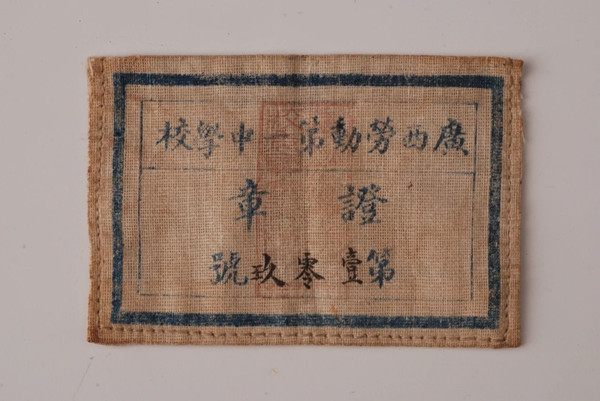 廣西勞動第一中學校
證章
第壹零玖號